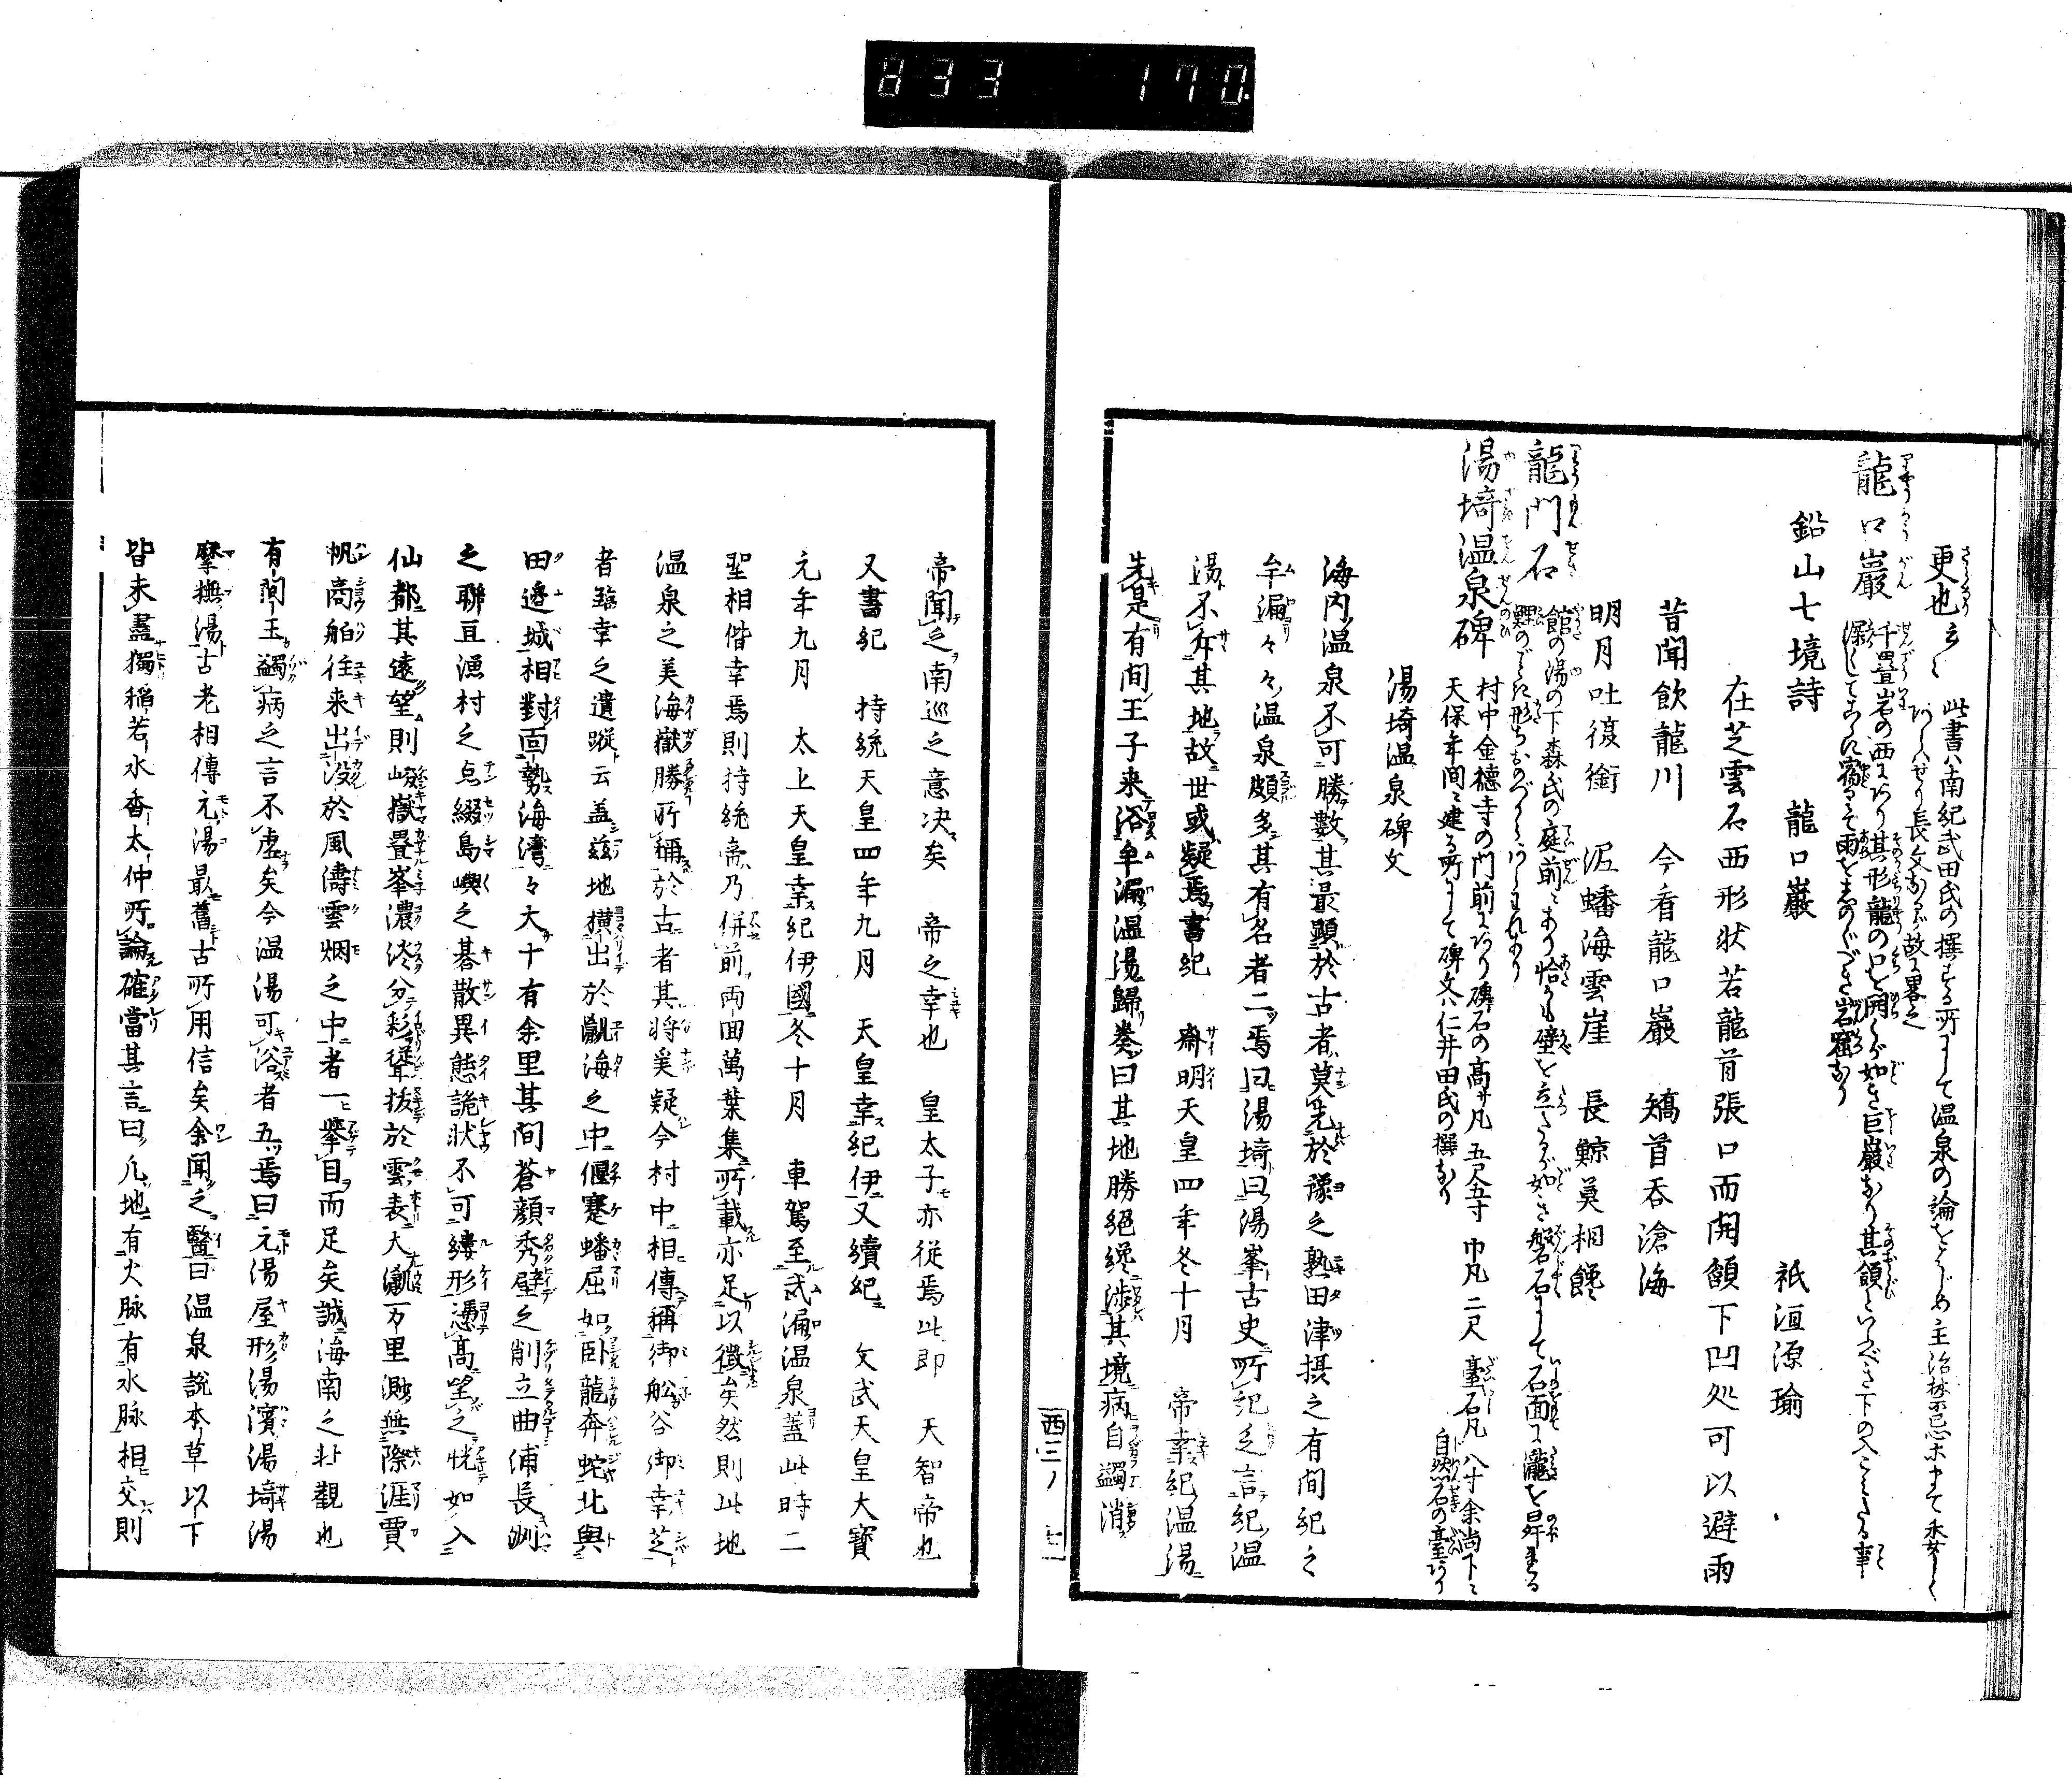 833 170
更也云〻
此書ハ南紀武田氏の撰する所にして温泉の論をはじめ主治禁忌ホまて委しく
龍口巖
千疊岩の西にあり其形龍の口を開くが如き巨巖なり其頷といふべき下の
鉛山七境詩 龍口巖 祇洹源瑜
在芝雲石西形状若龍首張口而開頷下凹処可以避雨
昔聞飲龍川 今看龍口巖 矯首呑滄海
明月吐復銜 泥蟠海雲崖 長鯨莫相饞
龍門石
館の湯の下森氏の庭前にあり恰も壁を立たるが如き磐石にして石面に瀧を昇する
鯉のごとき形ちおのづから
湯埼温泉碑
村中金徳寺の門前にあり碑石の高サ凡五尺五寸 巾凡二尺 臺石凡八寸余尚下ニ
天保年間ニ建る所にして碑文ハ仁井田氏の撰なり 自然石の臺あり
湯埼温泉碑文
海内温泉不可勝數其最顕於古者莫先於豫之熟田津摂之有間紀之
牟漏々々温泉頗多其有名者二焉曰湯埼曰湯峯古史所紀乏言紀温
湯不斥其地故世或疑焉書紀 齋明天皇四年冬十月 帝幸紀温湯
先是有間王子来浴牟漏温湯歸奏曰其地勝絶纔渉其境病自蠲消
西三ノ 七
帝聞之南巡之意决矣 帝之幸也 皇太子亦従焉此即 天智帝也
又書紀 持統天皇四年九月 天皇幸紀伊又續紀 文武天皇大寶
元年九月 太上天皇幸紀伊國冬十月 車駕至武漏温泉蓋此時二
聖相偕幸焉則持統帝乃併前両回萬葉集所載亦足以徴矣然則此地
温泉之美海嶽勝所稱於古者其将奚疑今村中相傳稱御舩谷御幸芝
者臨幸之遺蹤云盖茲地横出於瀛海之中偃蹇蟠屈如卧龍奔蛇北與
田邉城相對面勢海湾々大十有余里其間蒼顔秀壁之削立曲浦長洲
之聯亘漁村之点綴島嶼之碁散異態詭状不可縷形憑高望之恍如入
仙都其遠望則峻嶽疊峯濃淡分彩聳抜於雲表大瀛万里渺無際涯賈
帆商舶往来出没於風濤雲烟之中者一擧目而足矣誠海南之壮觀也
有間王蠲病之言不虚矣今温湯可浴者五焉曰元湯屋形湯濱湯埼湯
摩撫湯古老相傳元湯最舊古所用信矣余聞之醫曰温泉説本草以下
皆未盡獨稱若水香太仲所論確當其言曰凡地有火脉有水脉相交則